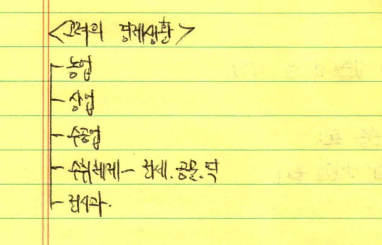 <고려의 경제생활>
- 농업
- 상업
- 수공업
- 수취체제 - 전세. 공물. 역
- 전시과.